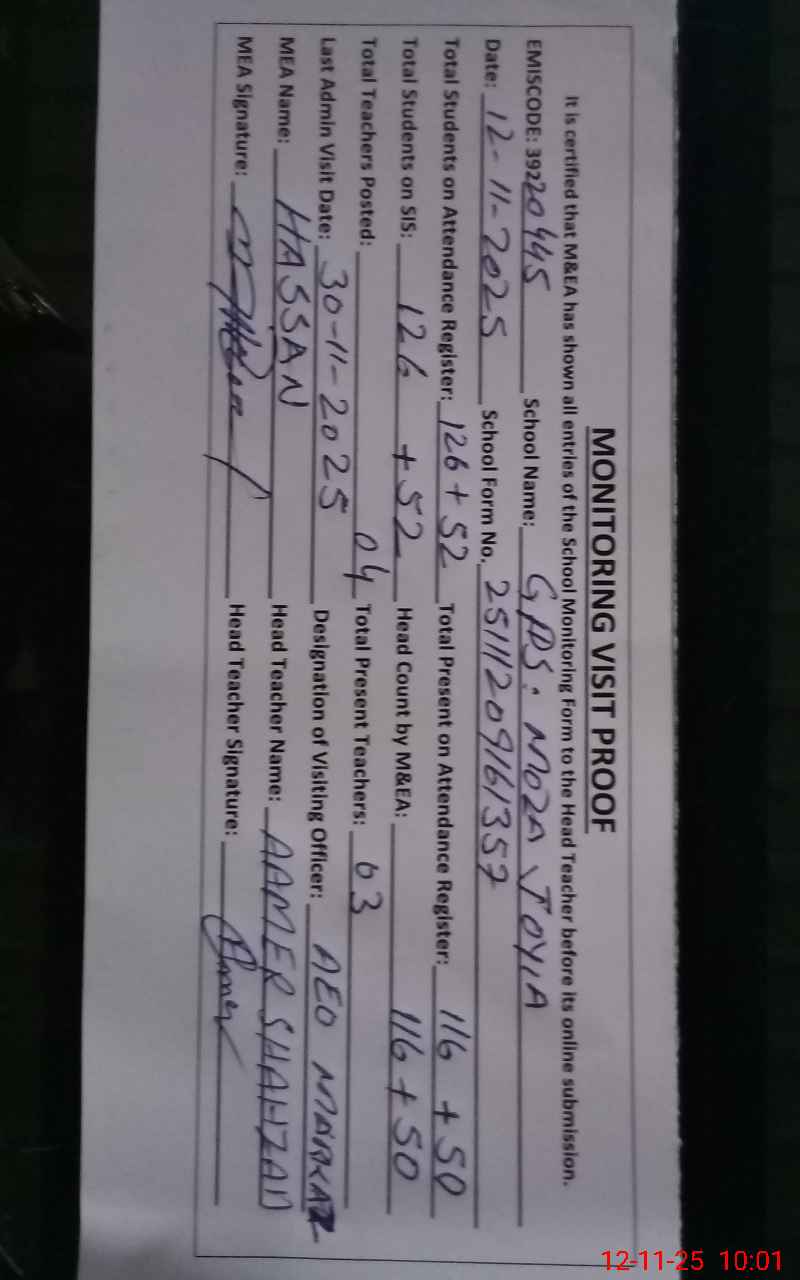 MONITORING VISIT PROOF
It is certified that M&EA has shown all entries of the School Monitoring Form to the Head Teacher before its online submission.
EMISCODE: 39220445 School Name: GPS: MOZA JOYIA
Date: 12-11-2025 School Form No. 25111209161357
Total Students on Attendance Register: 126+52 Total Present on Attendance Register: 116 +50
Total Students on SIS: 126 +52 Head Count by M&EA: 116+50
Total Teachers Posted: 04 Total Present Teachers: 03
Last Admin Visit Date: 30-11-2025 Designation of Visiting Officer: AEO MARKAZ
MEA Name: HASSAN Head Teacher Name: AAMER SHAHZAD
MEA Signature: Head Teacher Signature:
12-11-25 10:01